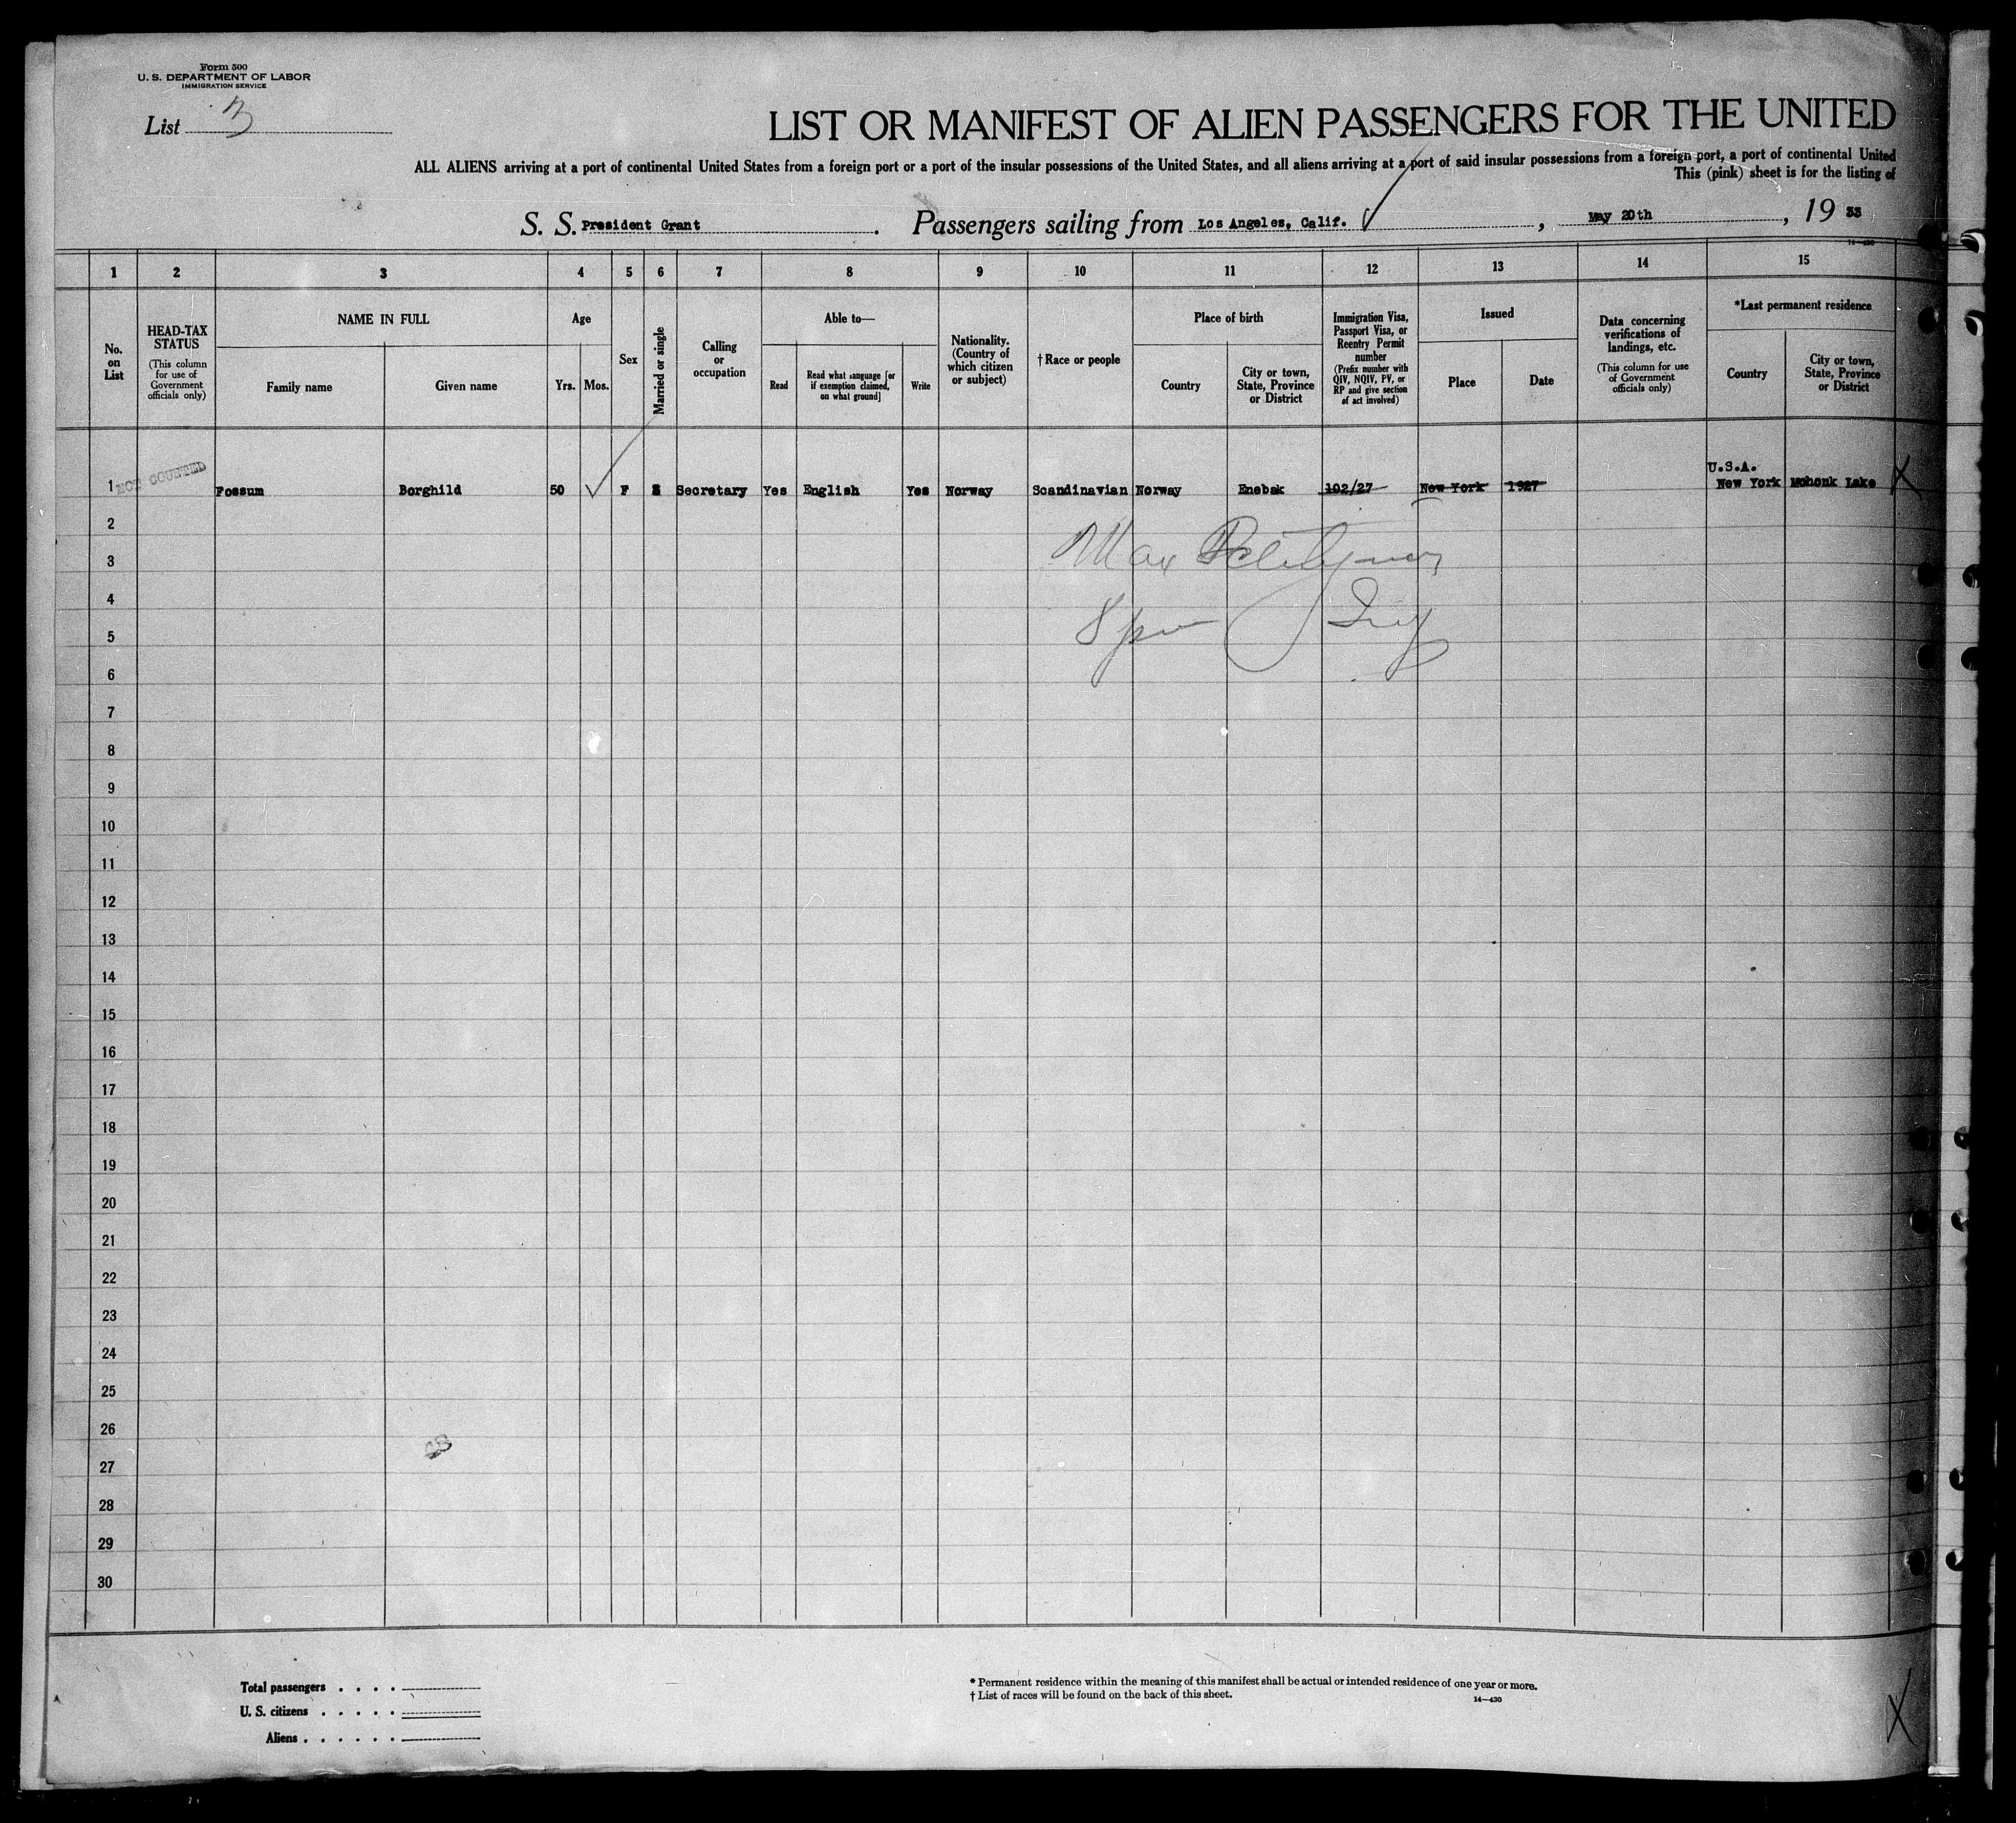 Form 500
U. S. DEPARTMENT OF LABOR
IMMIGRATION SERVICE
List 3
LIST OR MANIFEST OF ALIEN PASSENGERS FOR THE UNITED
ALL ALIENS arriving at a port of continental United States from a foreign port or a port of the insular possessions of the United States, and all aliens arriving at a port of said insular possessions from a foreign port, a port of continental United
This (pink) sheet is for the listing of
S. S. President Grant . Passengers sailing from Los Angeles, Calif. , May 20th , 19 33
14—430
1 2 3 4 5 6 7 8 9 10 11 12 13 14 15
No. on List
HEAD-TAX STATUS
(This column for use of Government officials only)
NAME IN FULL
Family name
Given name
Age
Yrs. Mos.
Sex
Married or single
Calling or occupation
Able to—
Read
Read what language [or if exemption claimed, on what ground]
Write
Nationality. (Country of which citizen or subject)
†Race or people
Place of birth
Country
City or town, State, Province or District
Immigration Visa, Passport Visa, or Reentry Permit number
(Prefix number with QIV, NQIV, PV, or RP and give section of act involved)
Issued
Place
Date
Data concerning verifications of landings, etc.
(This column for use of Government officials only)
*Last permanent residence
Country
City or town, State, Province or District
U.S.A.
1 NOT COUNTED Fossum Borghild 50 F S Secretary Yes English Yes Norway Scandinavian Norway Enebak 102/27 New York 1927 New York Mohonk Lake
2
Max
3
4
5
6
7
8
9
10
11
12
13
14
15
16
17
18
19
20
21
22
23
24
25
26
27
28
29
30
Total passengers . . . .
U. S. citizens . . . . .
Aliens . . . . . .
* Permanent residence within the meaning of this manifest shall be actual or intended residence of one year or more.
† List of races will be found on the back of this sheet.
14—430